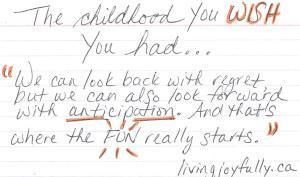 The childhood you WISH
You had...
"We can look back with regret
but we can also look forward
with anticipation. And that's
where the FUN really starts."
livingjoyfully.ca